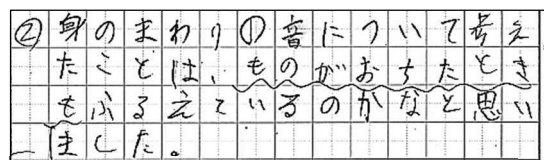 ②身のまわりの音について考え
たことは、ものがおちたとき
もふるえているのかなと思い
ました。